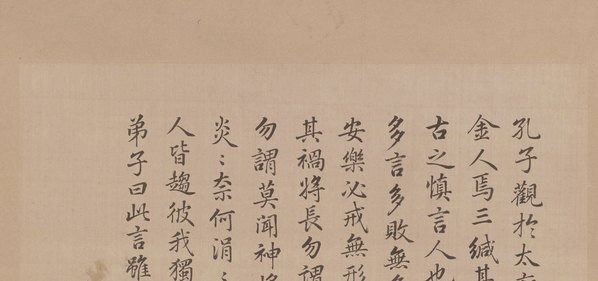 孔子觀於太
金人焉三緘其
古之慎言人也
多言多敗無
安樂必戒無形
其禍將長勿謂
勿謂莫聞神
炎〻奈何涓〻
人皆趨彼我獨
弟子曰此言雖